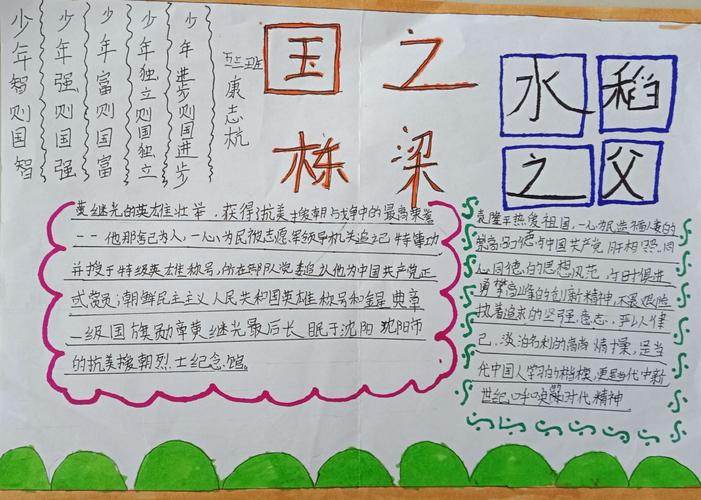 少年智则国智
少年强则国强
少年富则国富
少年独立则国独立
少年进步则国进步
五三班
康志杭
国之
栋梁
水稻
之父
黄继光的英雄壮举，获得抗美援朝战争中的最高荣誉
——他那舍己为人，一心为民被志愿军领导机关追记特等功
并授于特级英雄称号，所在部队党委追认他为中国共产党正
式党员；朝鲜民主主义人民共和国英雄称号和金星奖章
一级国旗勋章黄继光最后长眠于沈阳沈阳市
的抗美援朝烈士纪念馆。
袁隆平热爱祖国，一心为民造福人类的
崇高品德与中国共产党肝相照、同
心同德的思想风范，与时俱进
勇攀高峰的创新精神，不畏艰险
执着追求的坚强意志，严以律
己，淡泊名利的高尚情操，是当
代中国人学习的楷模，更是当代中新
世纪呼唤的时代精神